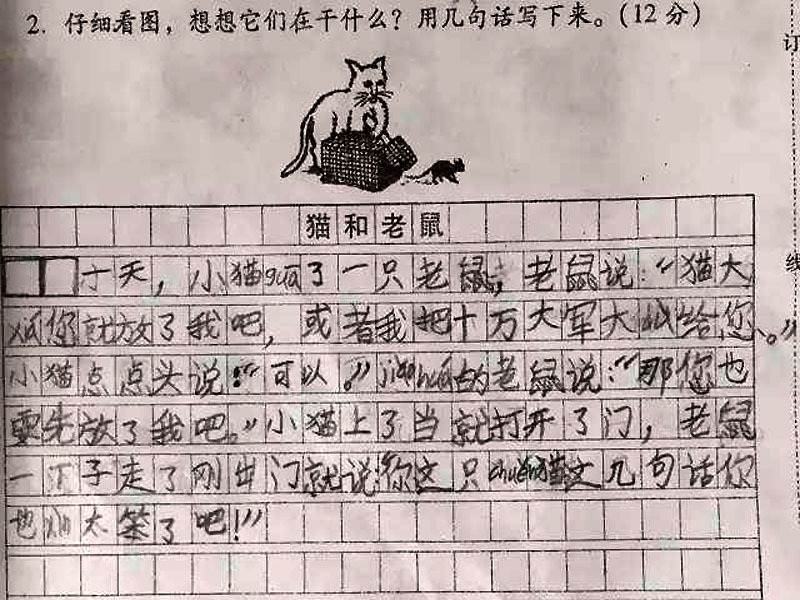 2. 仔细看图，想想它们在干什么？用几句话写下来。（12分）
订
猫和老鼠
天，小猫gua了一只老鼠，老鼠说：“猫大
线
您就放了我吧，或者我把十万大军大给您。”
小猫点点头说：“可以。”jiao hua的老鼠说：“那您也
要先放了我吧。”小猫上了当就打开了门，老鼠
一下子走了刚出门就说：“你这只猫文几句话你
也太笨了吧！”